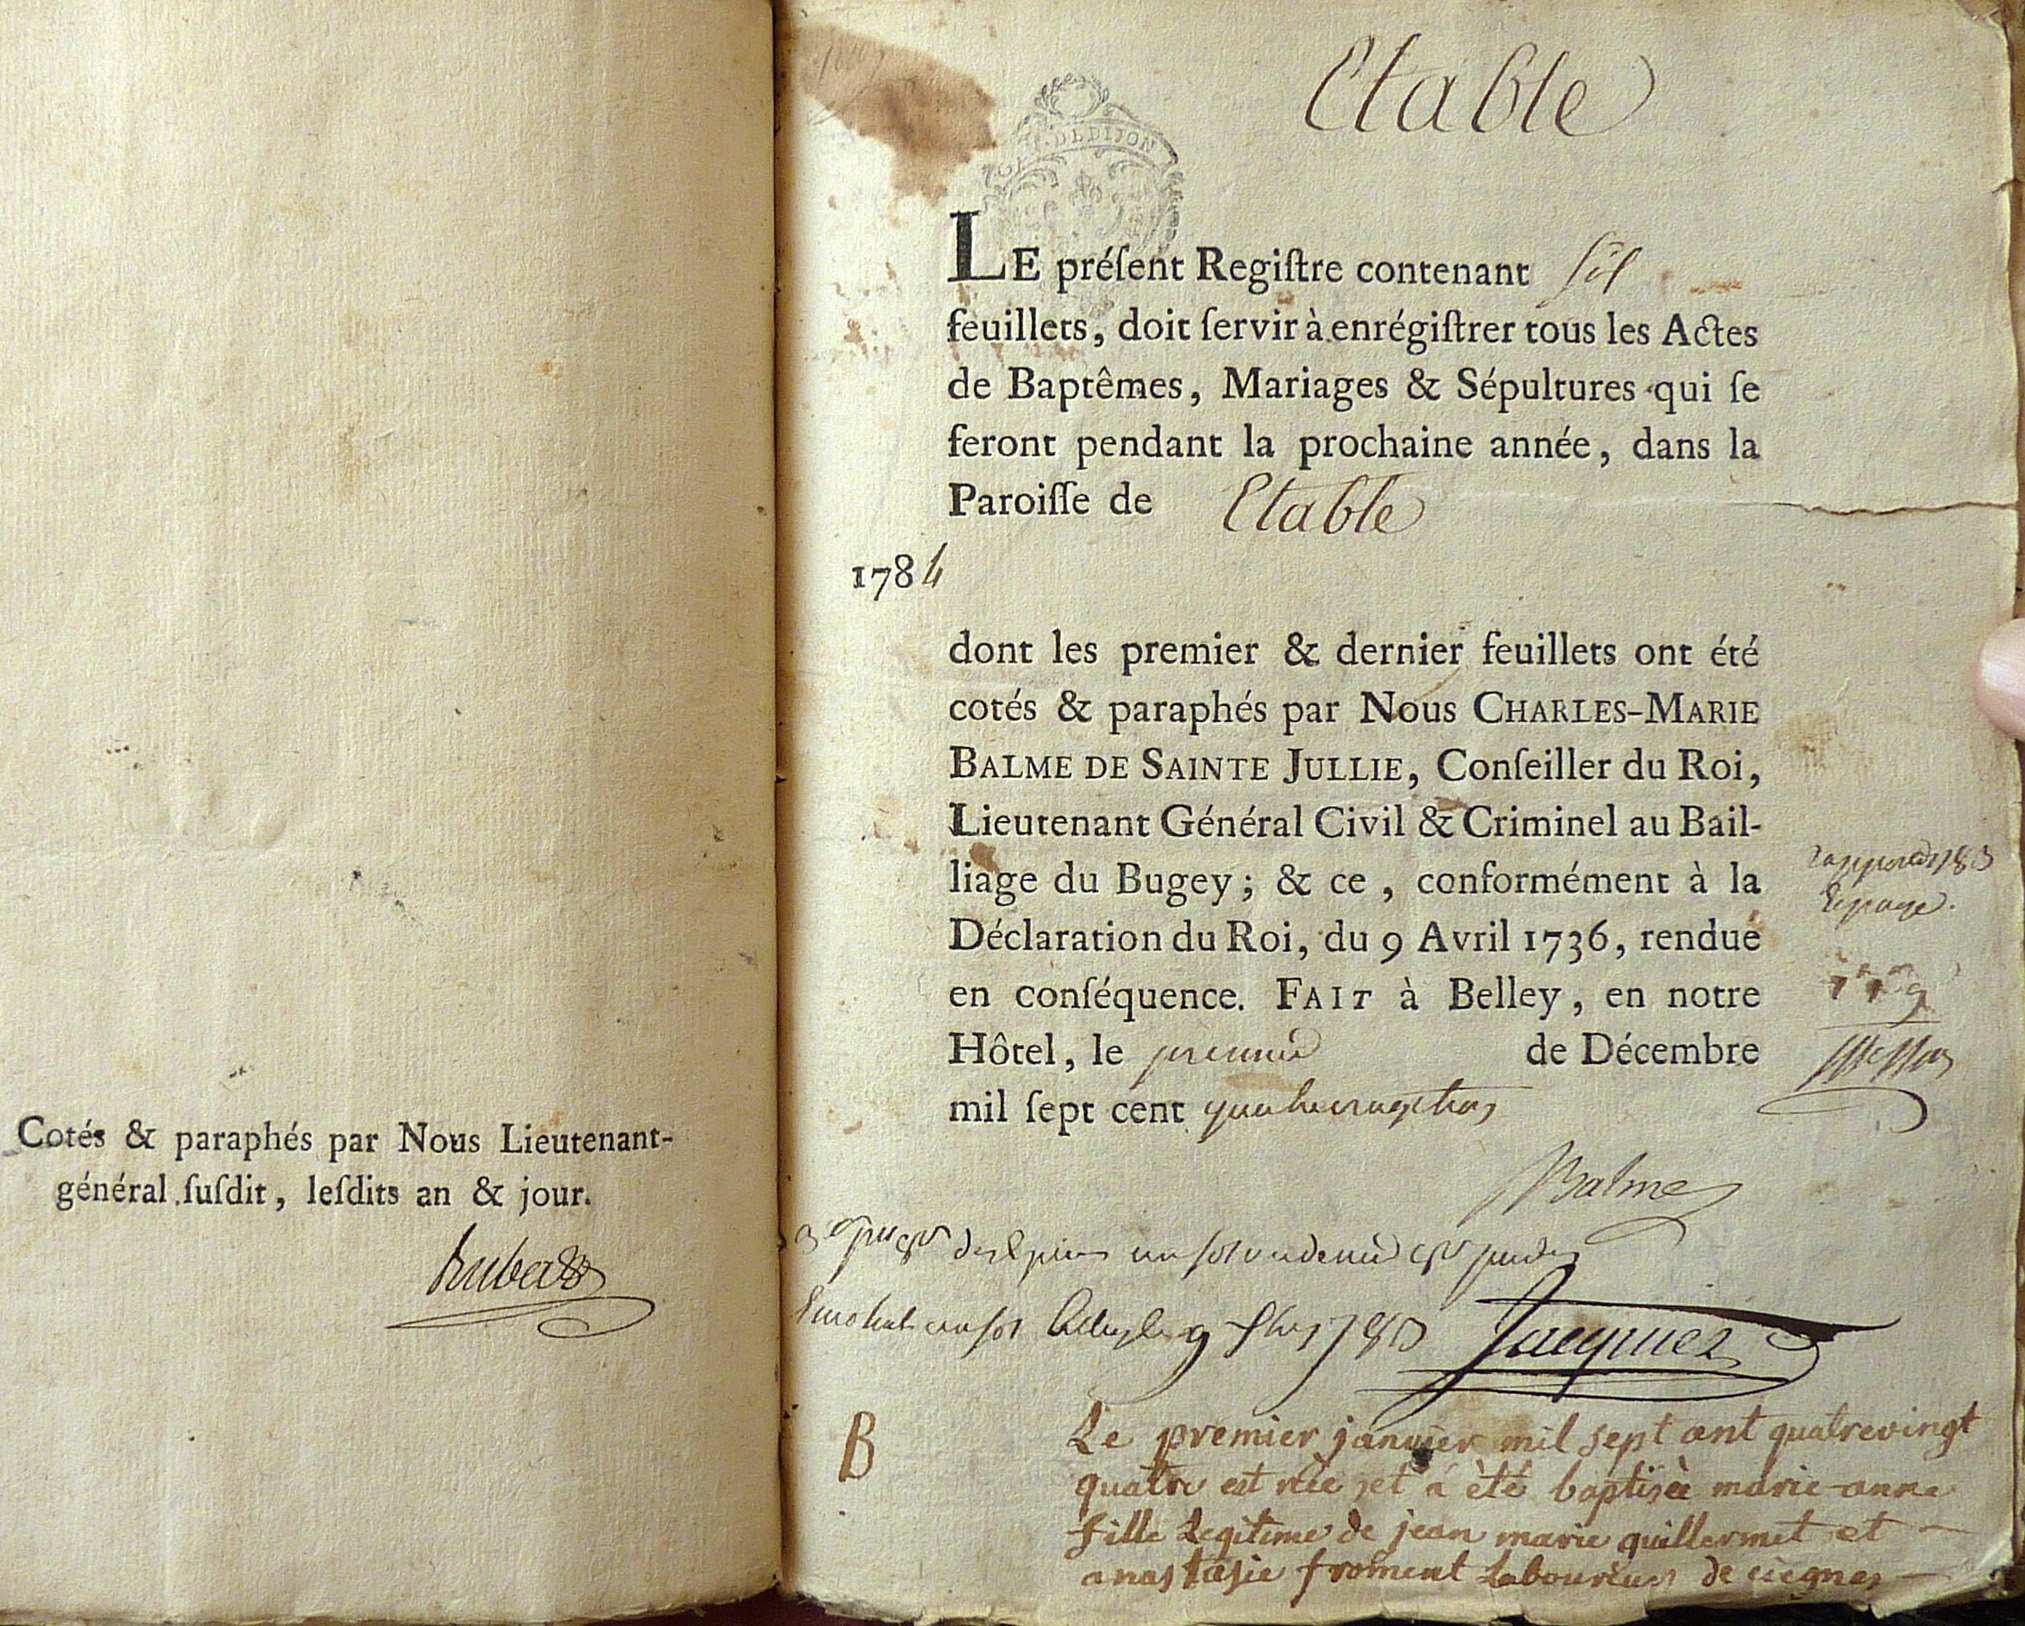 Cotés & paraphés par Nous Lieutenant-
général ſuſdit, leſdits an & jour.
Etable
DE DIJON
LE préſent Regiſtre contenant ſix
feuillets, doit ſervir à enrégiſtrer tous les Actes
de Baptêmes, Mariages & Sépultures qui ſe
feront pendant la prochaine année, dans la
Paroiſſe de Etable
1784
dont les premier & dernier feuillets ont été
cotés & paraphés par Nous CHARLES-MARIE
BALME DE SAINTE JULLIE, Conſeiller du Roi,
Lieutenant Général Civil & Criminel au Bail-
liage du Bugey; & ce, conformément à la
Déclaration du Roi, du 9 Avril 1736, rendue
en conſéquence. FAIT à Belley, en notre
Hôtel, le premier de Décembre
mil ſept cent quatrevingttrois
Balme
1783 Jacquier
B
Le premier janvier mil sept cent quatrevingt
quatre est née et a été baptisèe marie-anne
fille Legitime de jean marie guillermet et
anastasie froment Laboureurs de